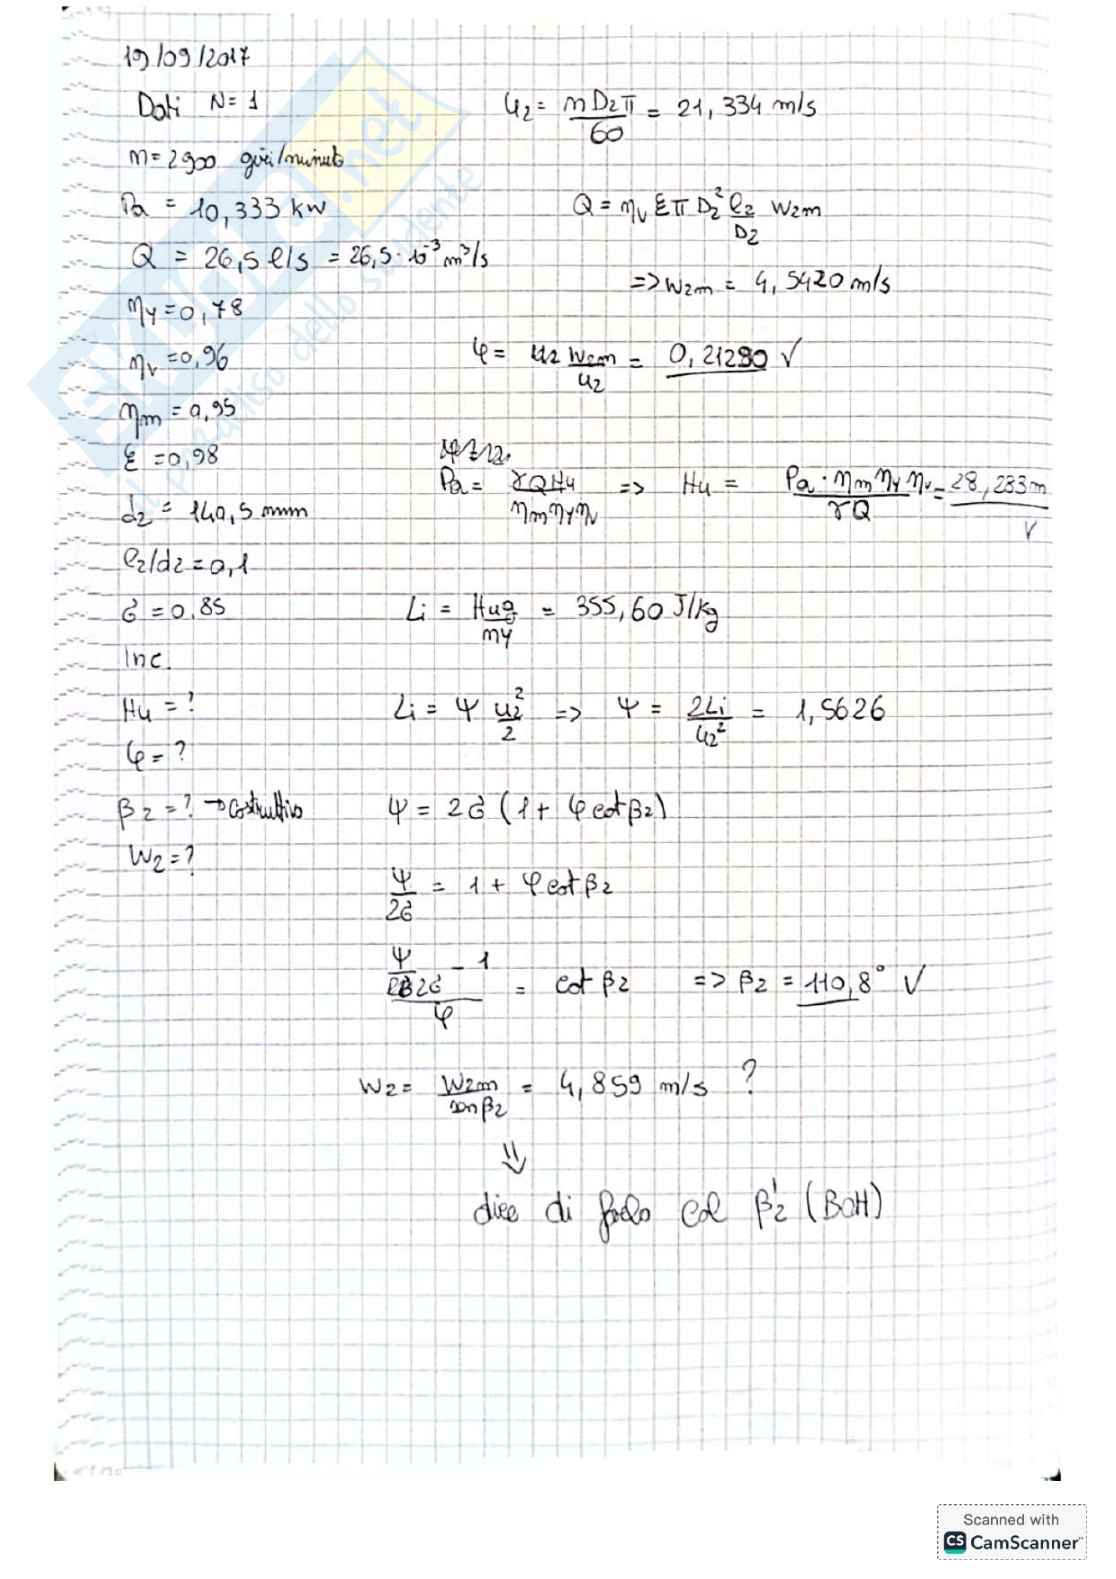 19/09/2017
Dati N=1
n=2900 giri/minuto
Pa = 10,333 kW
Q = 26,5 l/s = 26,5·10⁻³ m³/s
ηy=0,78
ηv=0,96
ηm=0,95
ξ=0,98
d2=140,5 mm
l2/d2=0,1
σ=0,85
Inc.
Hu=?
φ=?
β2=? → Costruttivo
W2=?
u2= nD2π/60 = 21,334 m/s
Q = ηv ξ π D2² l2/D2 w2m
=> w2m = 4,5420 m/s
φ= w2m/u2 = 0,21290 √
Pa= γQHu/ηmηyηv => Hu = Pa·ηmηyηv/γQ = 28,233m √
Li = Hug/ηy = 355,60 J/kg
Li = ψ u2²/2 => ψ = 2Li/u2² = 1,5626
ψ = 2σ (1+ φcotβ2)
ψ/2σ = 1+ φcotβ2
(ψ/2σ - 1)/φ = cotβ2 => β2 = 110,8° √
W2= W2m/senβ2 = 4,859 m/s ?
⇓
dice di farlo col β2' (BOH)
Scanned with
CS CamScanner